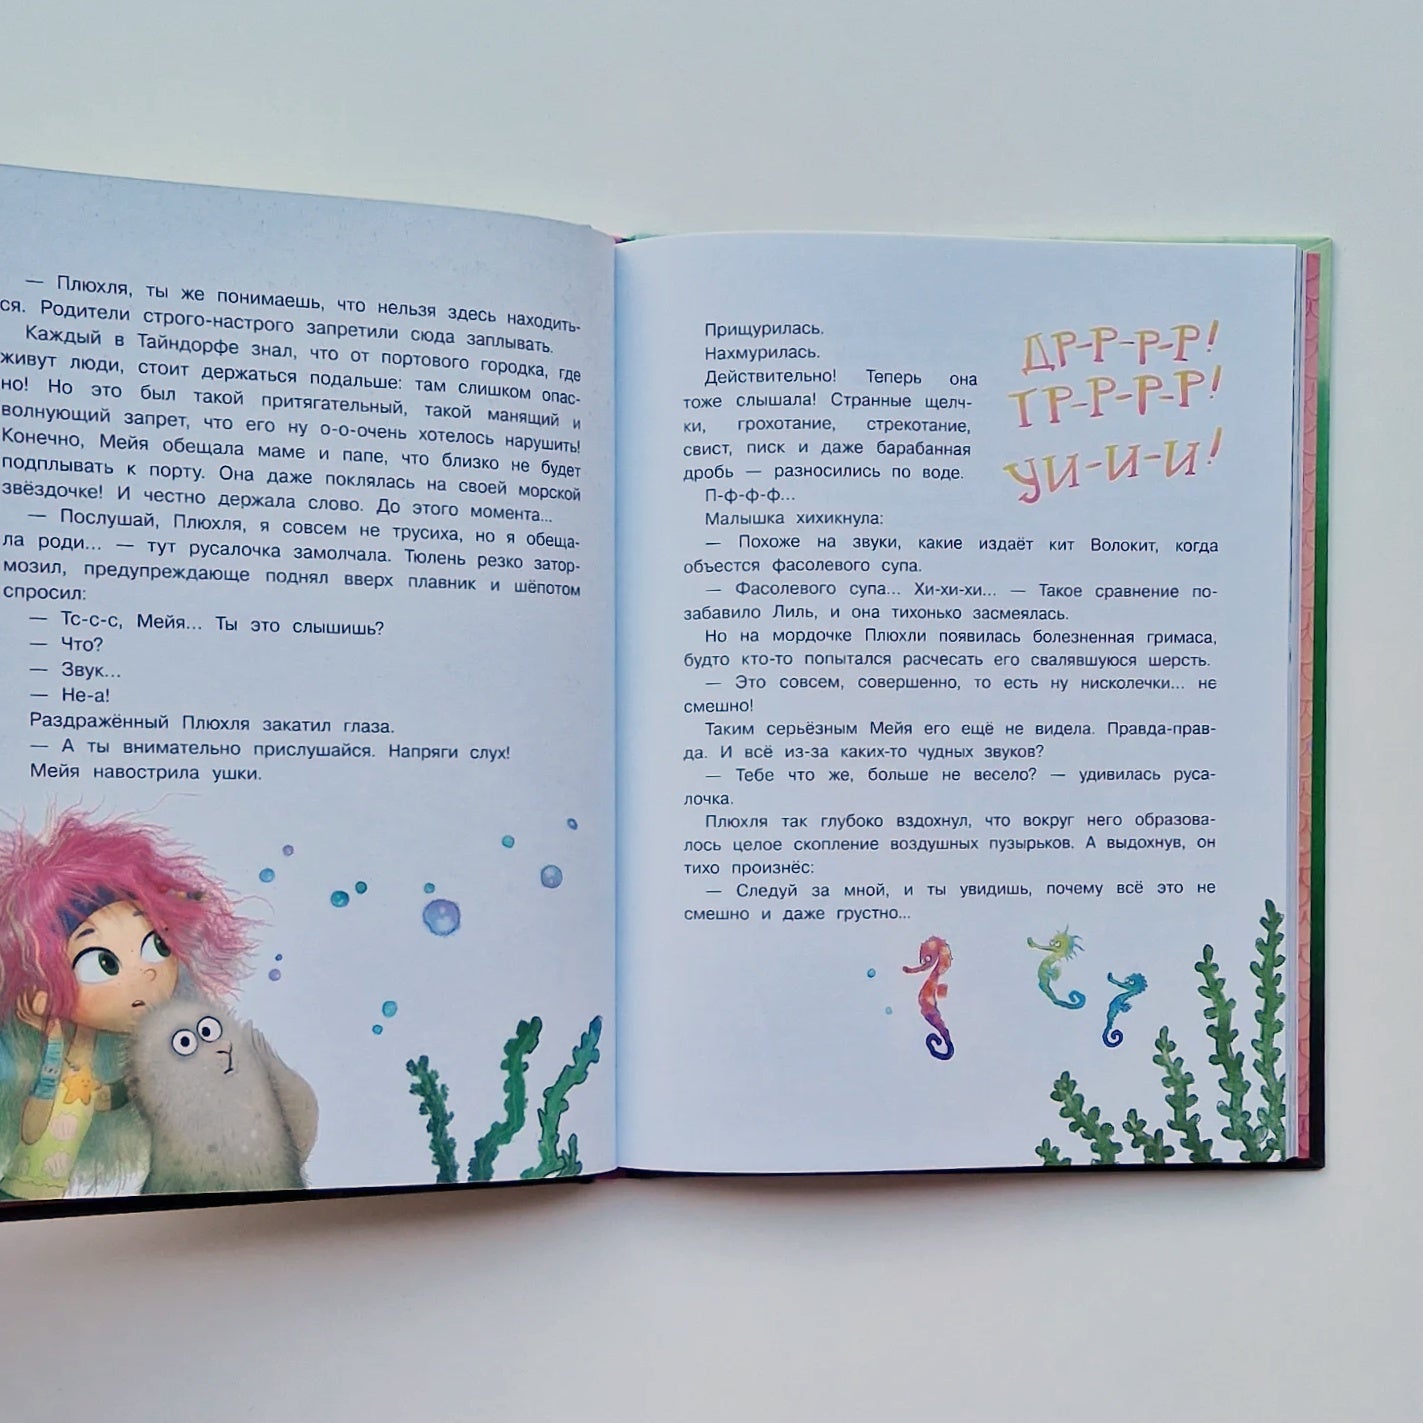 — Плюхля, ты же понимаешь, что нельзя здесь находить-
ся. Родители строго-настрого запретили сюда заплывать.
Каждый в Тайндорфе знал, что от портового городка, где
живут люди, стоит держаться подальше: там слишком опас-
но! Но это был такой притягательный, такой манящий и
волнующий запрет, что его ну о-о-очень хотелось нарушить!
Конечно, Мейя обещала маме и папе, что близко не будет
подплывать к порту. Она даже поклялась на своей морской
звёздочке! И честно держала слово. До этого момента...
— Послушай, Плюхля, я совсем не трусиха, но я обеща-
ла роди... — тут русалочка замолчала. Тюлень резко затор-
мозил, предупреждающе поднял вверх плавник и шёпотом
спросил:
— Тс-с-с, Мейя... Ты это слышишь?
— Что?
— Звук...
— Не-а!
Раздражённый Плюхля закатил глаза.
— А ты внимательно прислушайся. Напряги слух!
Мейя навострила ушки.
Прищурилась.
Нахмурилась.
Действительно! Теперь она
тоже слышала! Странные щелч-
ки, грохотание, стрекотание,
свист, писк и даже барабанная
дробь — разносились по воде.
ДР-Р-Р-Р!
ТР-Р-Р-Р!
УИ-И-И!
П-ф-ф-ф...
Малышка хихикнула:
— Похоже на звуки, какие издаёт кит Волокит, когда
объестся фасолевого супа.
— Фасолевого супа... Хи-хи-хи... — Такое сравнение по-
забавило Лиль, и она тихонько засмеялась.
Но на мордочке Плюхли появилась болезненная гримаса,
будто кто-то попытался расчесать его свалявшуюся шерсть.
— Это совсем, совершенно, то есть ну нисколечки... не
смешно!
Таким серьёзным Мейя его ещё не видела. Правда-прав-
да. И всё из-за каких-то чудных звуков?
— Тебе что же, больше не весело? — удивилась руса-
лочка.
Плюхля так глубоко вздохнул, что вокруг него образова-
лось целое скопление воздушных пузырьков. А выдохнув, он
тихо произнёс:
— Следуй за мной, и ты увидишь, почему всё это не
смешно и даже грустно...